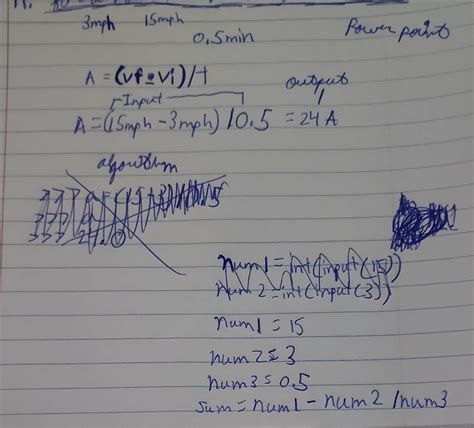 3mph 15mph
0.5min
Power point
A = (vf - vi) / t
Input
output
A = (15mph - 3mph) / 0.5 = 24 A
algorithm
num1 = int(input(15))
num 2 = int(input(3))
num1 = 15
num2 = 3
num3 = 0.5
sum = num1 - num2 / num3